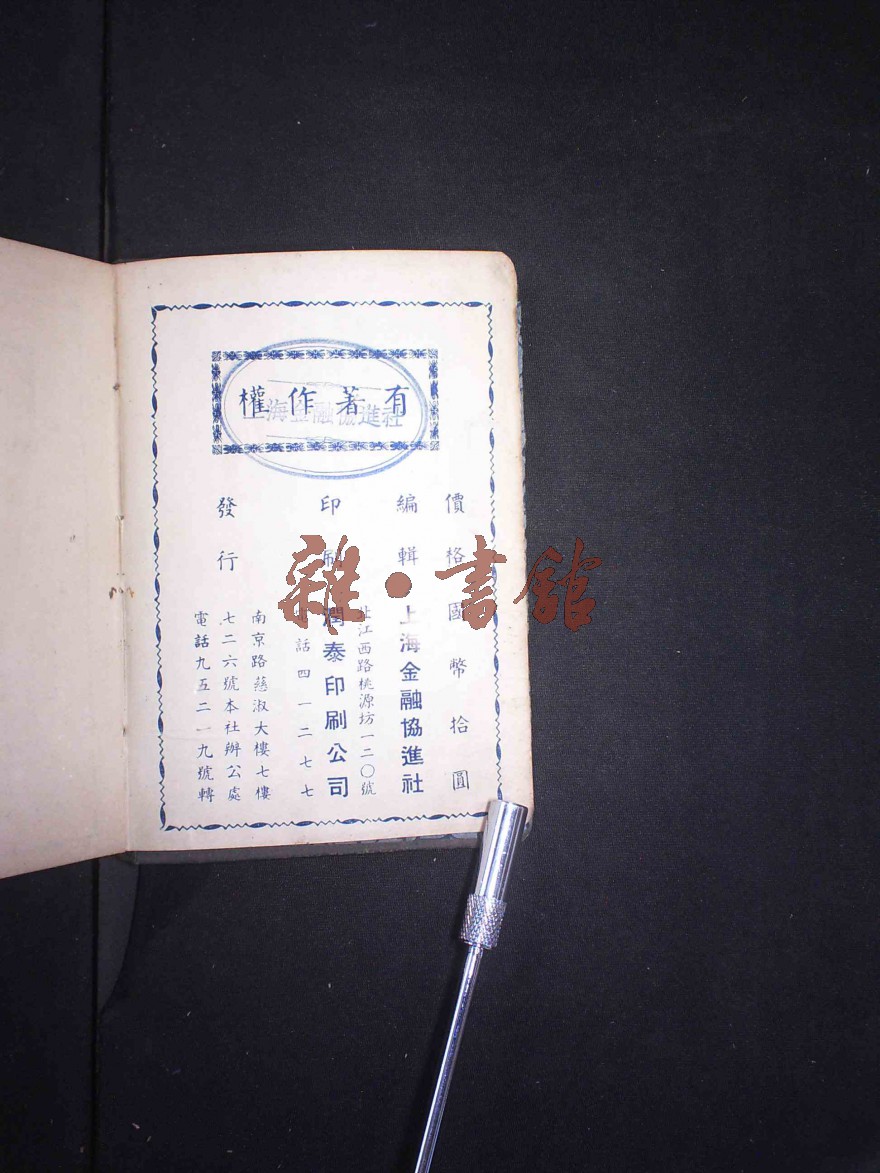 有著作權
上海金融協進社
價格國幣拾圓
編輯 上海金融協進社
址江西路桃源坊一二〇號
印刷 潤泰印刷公司
電話四一二七七
發行
南京路慈淑大樓七樓
七二六號本社辦公處
電話九五二一九號轉
雜·書館